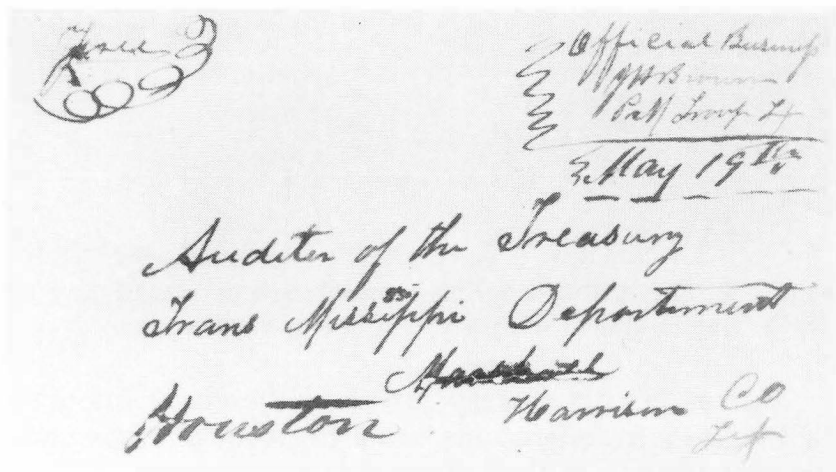 Official Business
JH Brown
PM Troup Tx
May 19th
Auditor of the Treasury
Trans Mississippi Department
Marshall
Houston Harrison CO
Tex